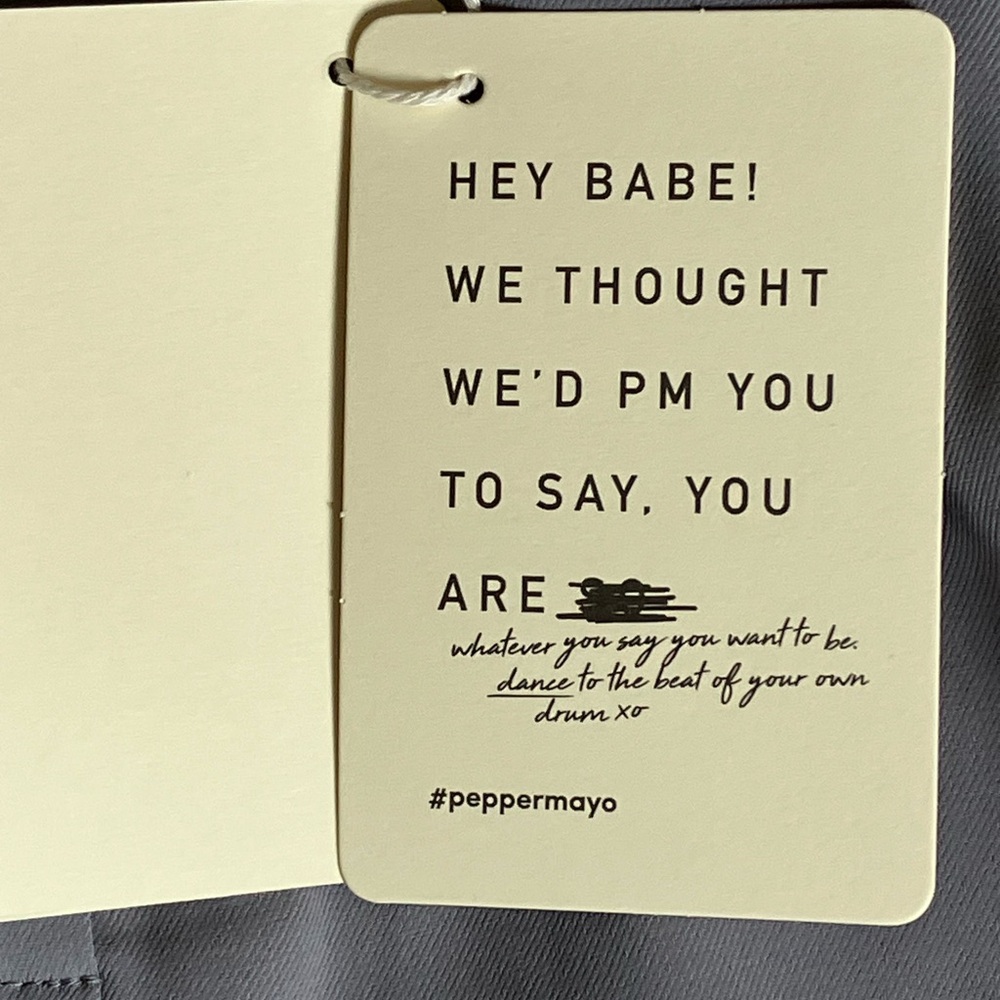 HEY BABE!
WE THOUGHT
WE'D PM YOU
TO SAY, YOU
ARE
whatever you say you want to be.
dance to the beat of your own
drum xo
#peppermayo